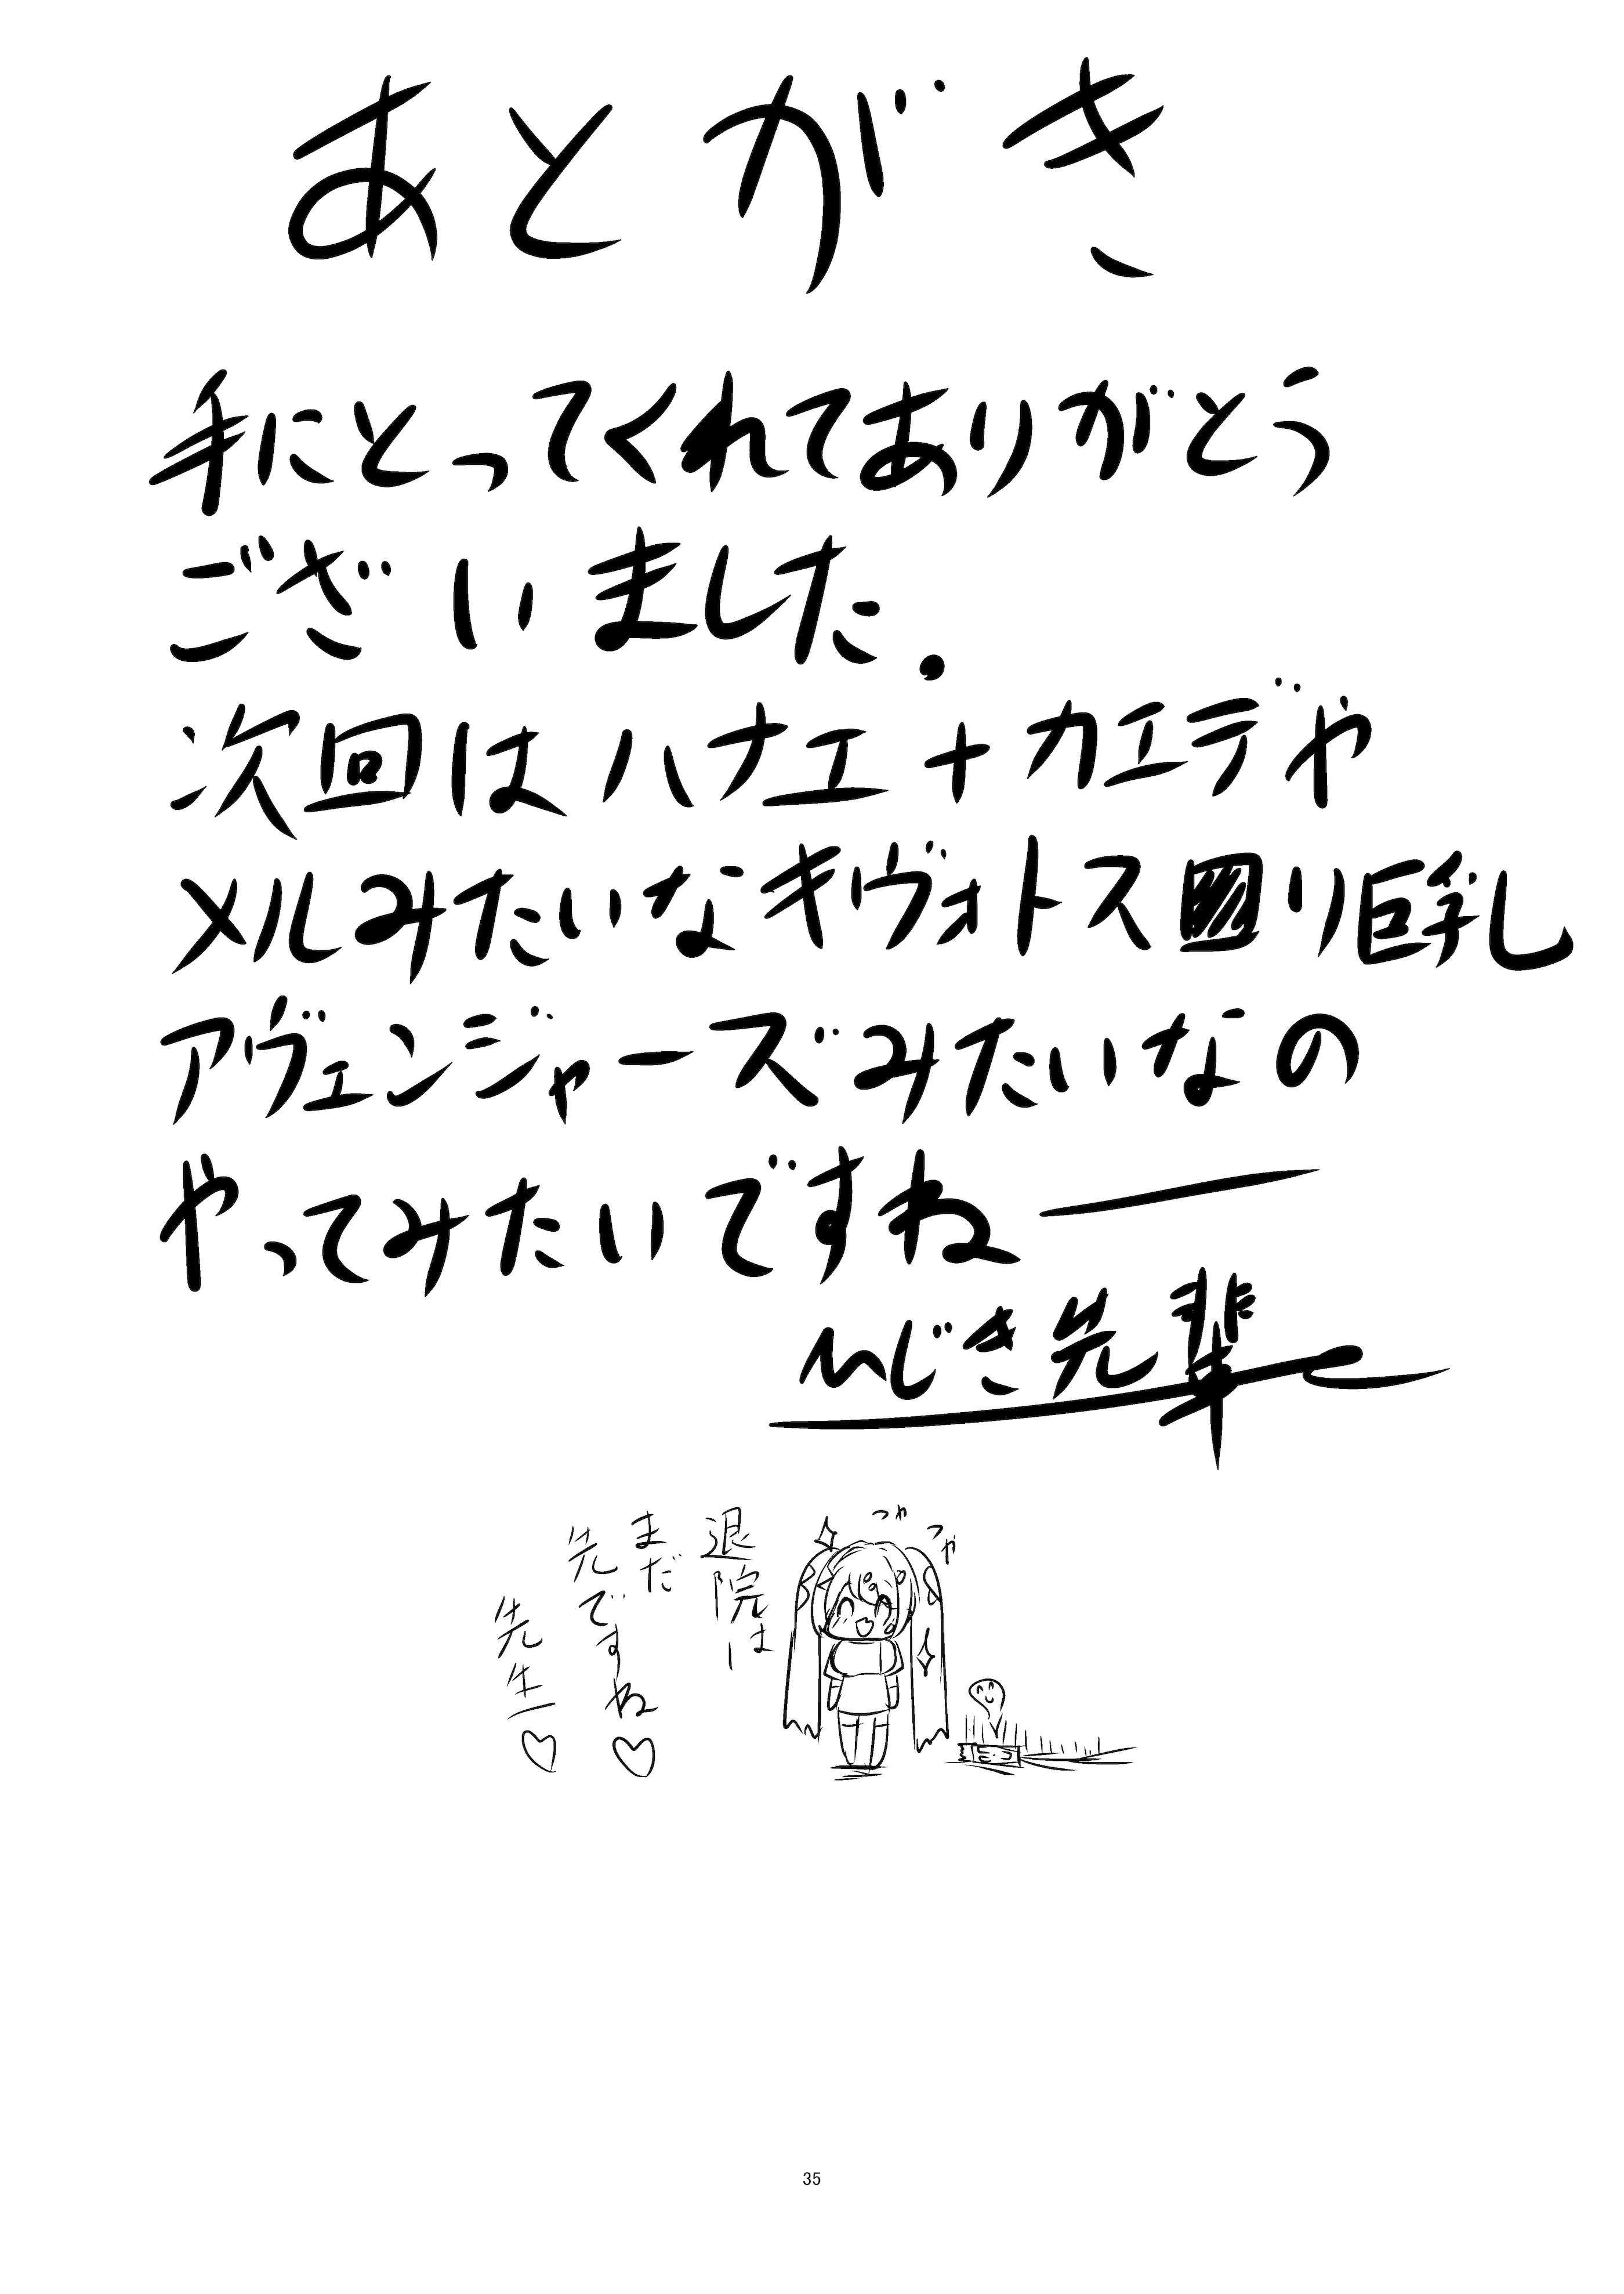 あとがき
手にとってくれてありがとう
ございました.
次回はハナエ+カエデや
メルみたいなキヴォトス困り巨乳
アヴェンジャーズみたいなの
やってみたいですねー
んじき先輩
つや
つや
退院は
まだ
先ですね♡
先生♡
35